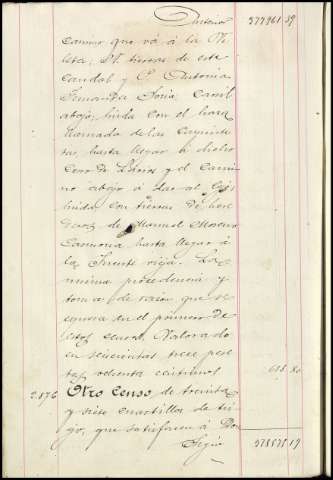 Anterior 577961 39
camino que vá á la Ve
leta; N. tierras de este
caudal y Dª Antonia
Fernanda Soria, Carril
abajo, linda con el haza
llamada de las Carpinte
ras hasta llegar á dicho
Cerro de y el cami
no abajo á dar al
linda con tierras de here
deros de Manuel Moreno
Carmona hasta llegar á
la Fuente vieja. La
misma procedencia y
toma de razon que se
espresa en el primero de
estos censos. Valorado
en seiscientas trece pese
tas ochenta céntimos 613 80
2.176 Otro Censo, de treinta
y siete cuartillos de tri
go, que satisfacen á Dn
Sigue 578575 19